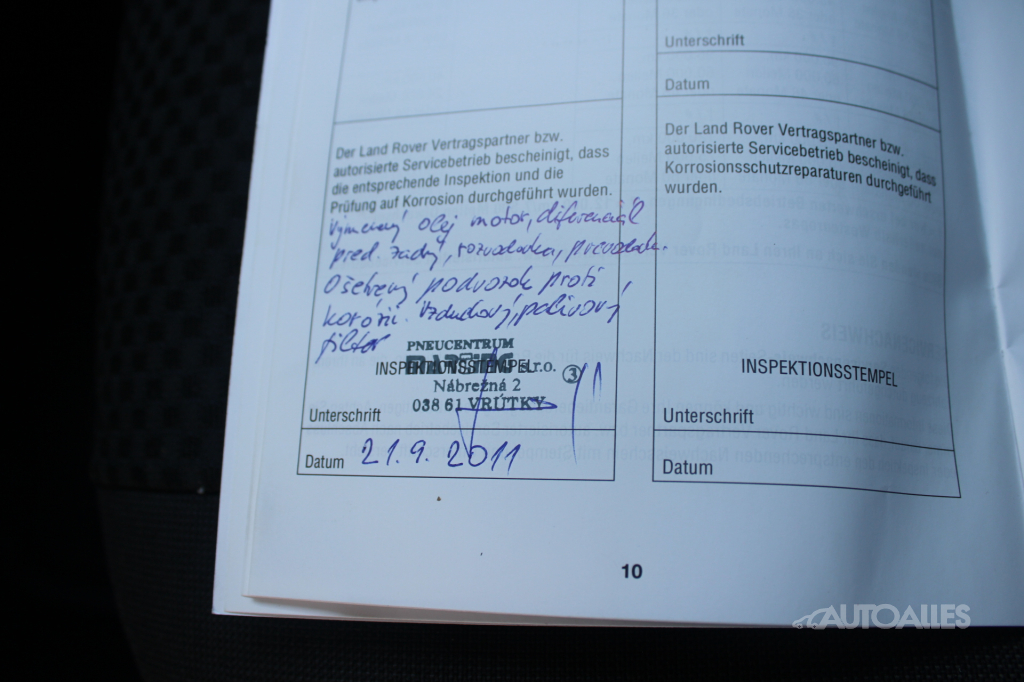 Der Land Rover Vertragspartner bzw.
autorisierte Servicebetrieb bescheinigt, dass
die entsprechende Inspektion und die
Prüfung auf Korrosion durchgeführt wurden.
Vymenený olej motor, diferenciál
pred. zadný, rozvodovka, prevodovk.
Ošetrený podvozok proti
korózii. Vzduchový, palivový
filter
PNEUCENTRUM
INSPEKTIONSSTEMPEL
s.r.o.
3
Nábrežná 2
038 61 VRÚTKY
Unterschrift
Datum 21.9.2011
Unterschrift
Datum
Der Land Rover Vertragspartner bzw.
autorisierte Servicebetrieb bescheinigt, dass
Korrosionsschutzreparaturen durchgeführt
wurden.
INSPEKTIONSSTEMPEL
Unterschrift
Datum
10
AUTOALLES